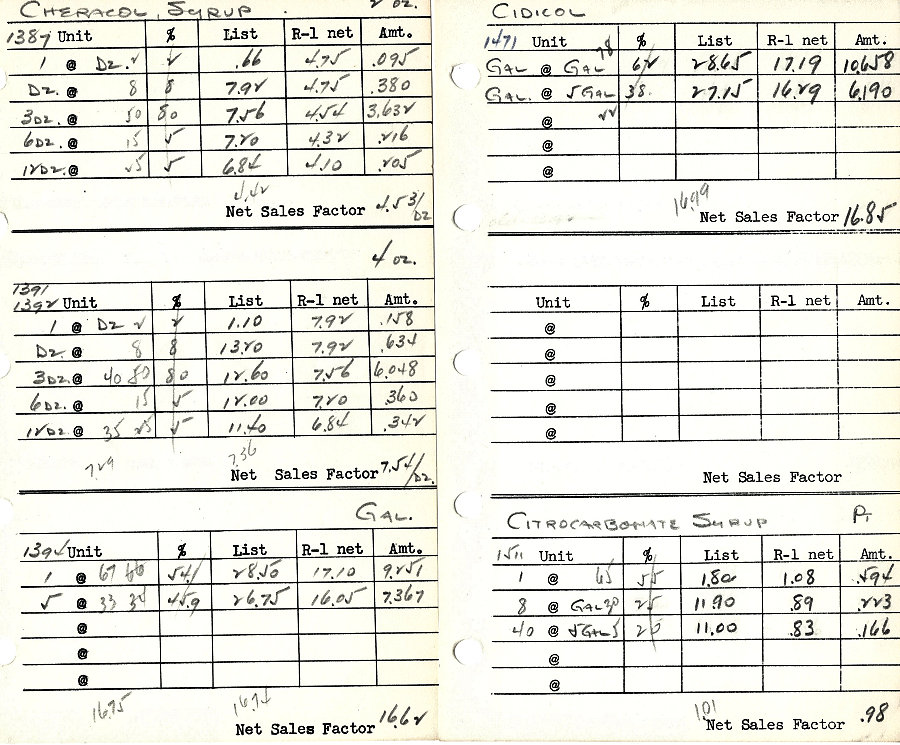 CHERACOL, SYRUP 2 OZ.
1387 Unit % List R-1 net Amt.
1 @ DZ. 2 2 .66 4.75 .095
DZ. @ 8 8 7.92 4.75 .380
3DZ. @ 50 80 7.56 4.54 3.632
6DZ. @ 15 5 7.20 4.32 .216
12DZ. @ 25 5 6.84 4.10 .205
4.42
Net Sales Factor 4.53/DZ
4 OZ.
1391
1392 Unit % List R-1 net Amt.
1 @ DZ 2 2 1.10 7.92 .158
DZ. @ 8 8 13.20 7.92 .634
3DZ. @ 40 50 80 12.60 7.56 6.048
6DZ. @ 15 5 12.00 7.20 .360
12DZ @ 35 25 5 11.40 6.84 .342
7.29 7.36
Net Sales Factor 7.54/DZ.
GAL.
1394 Unit % List R-1 net Amt.
1 @ 67 54.1 28.50 17.10 9.251
5 @ 33 45.9 26.75 16.05 7.367
@
@
@
16.75 16.74
Net Sales Factor 16.62
CIDICOL
1471 Unit % List R-1 net Amt.
GAL @ GAL 78 62 28.65 17.19 10.658
GAL. @ 5GAL 38. 27.15 16.29 6.190
@ 22
@
@
16.99
Net Sales Factor 16.85
Unit % List R-1 net Amt.
@
@
@
@
@
Net Sales Factor
CITROCARBONATE SYRUP PT
1511 Unit % List R-1 net Amt.
1 @ 65 55 1.80 1.08 .594
8 @ GAL 30 25 11.90 .89 .223
40 @ 5GAL 5 20 11.00 .83 .166
@
@
1.01
Net Sales Factor .98